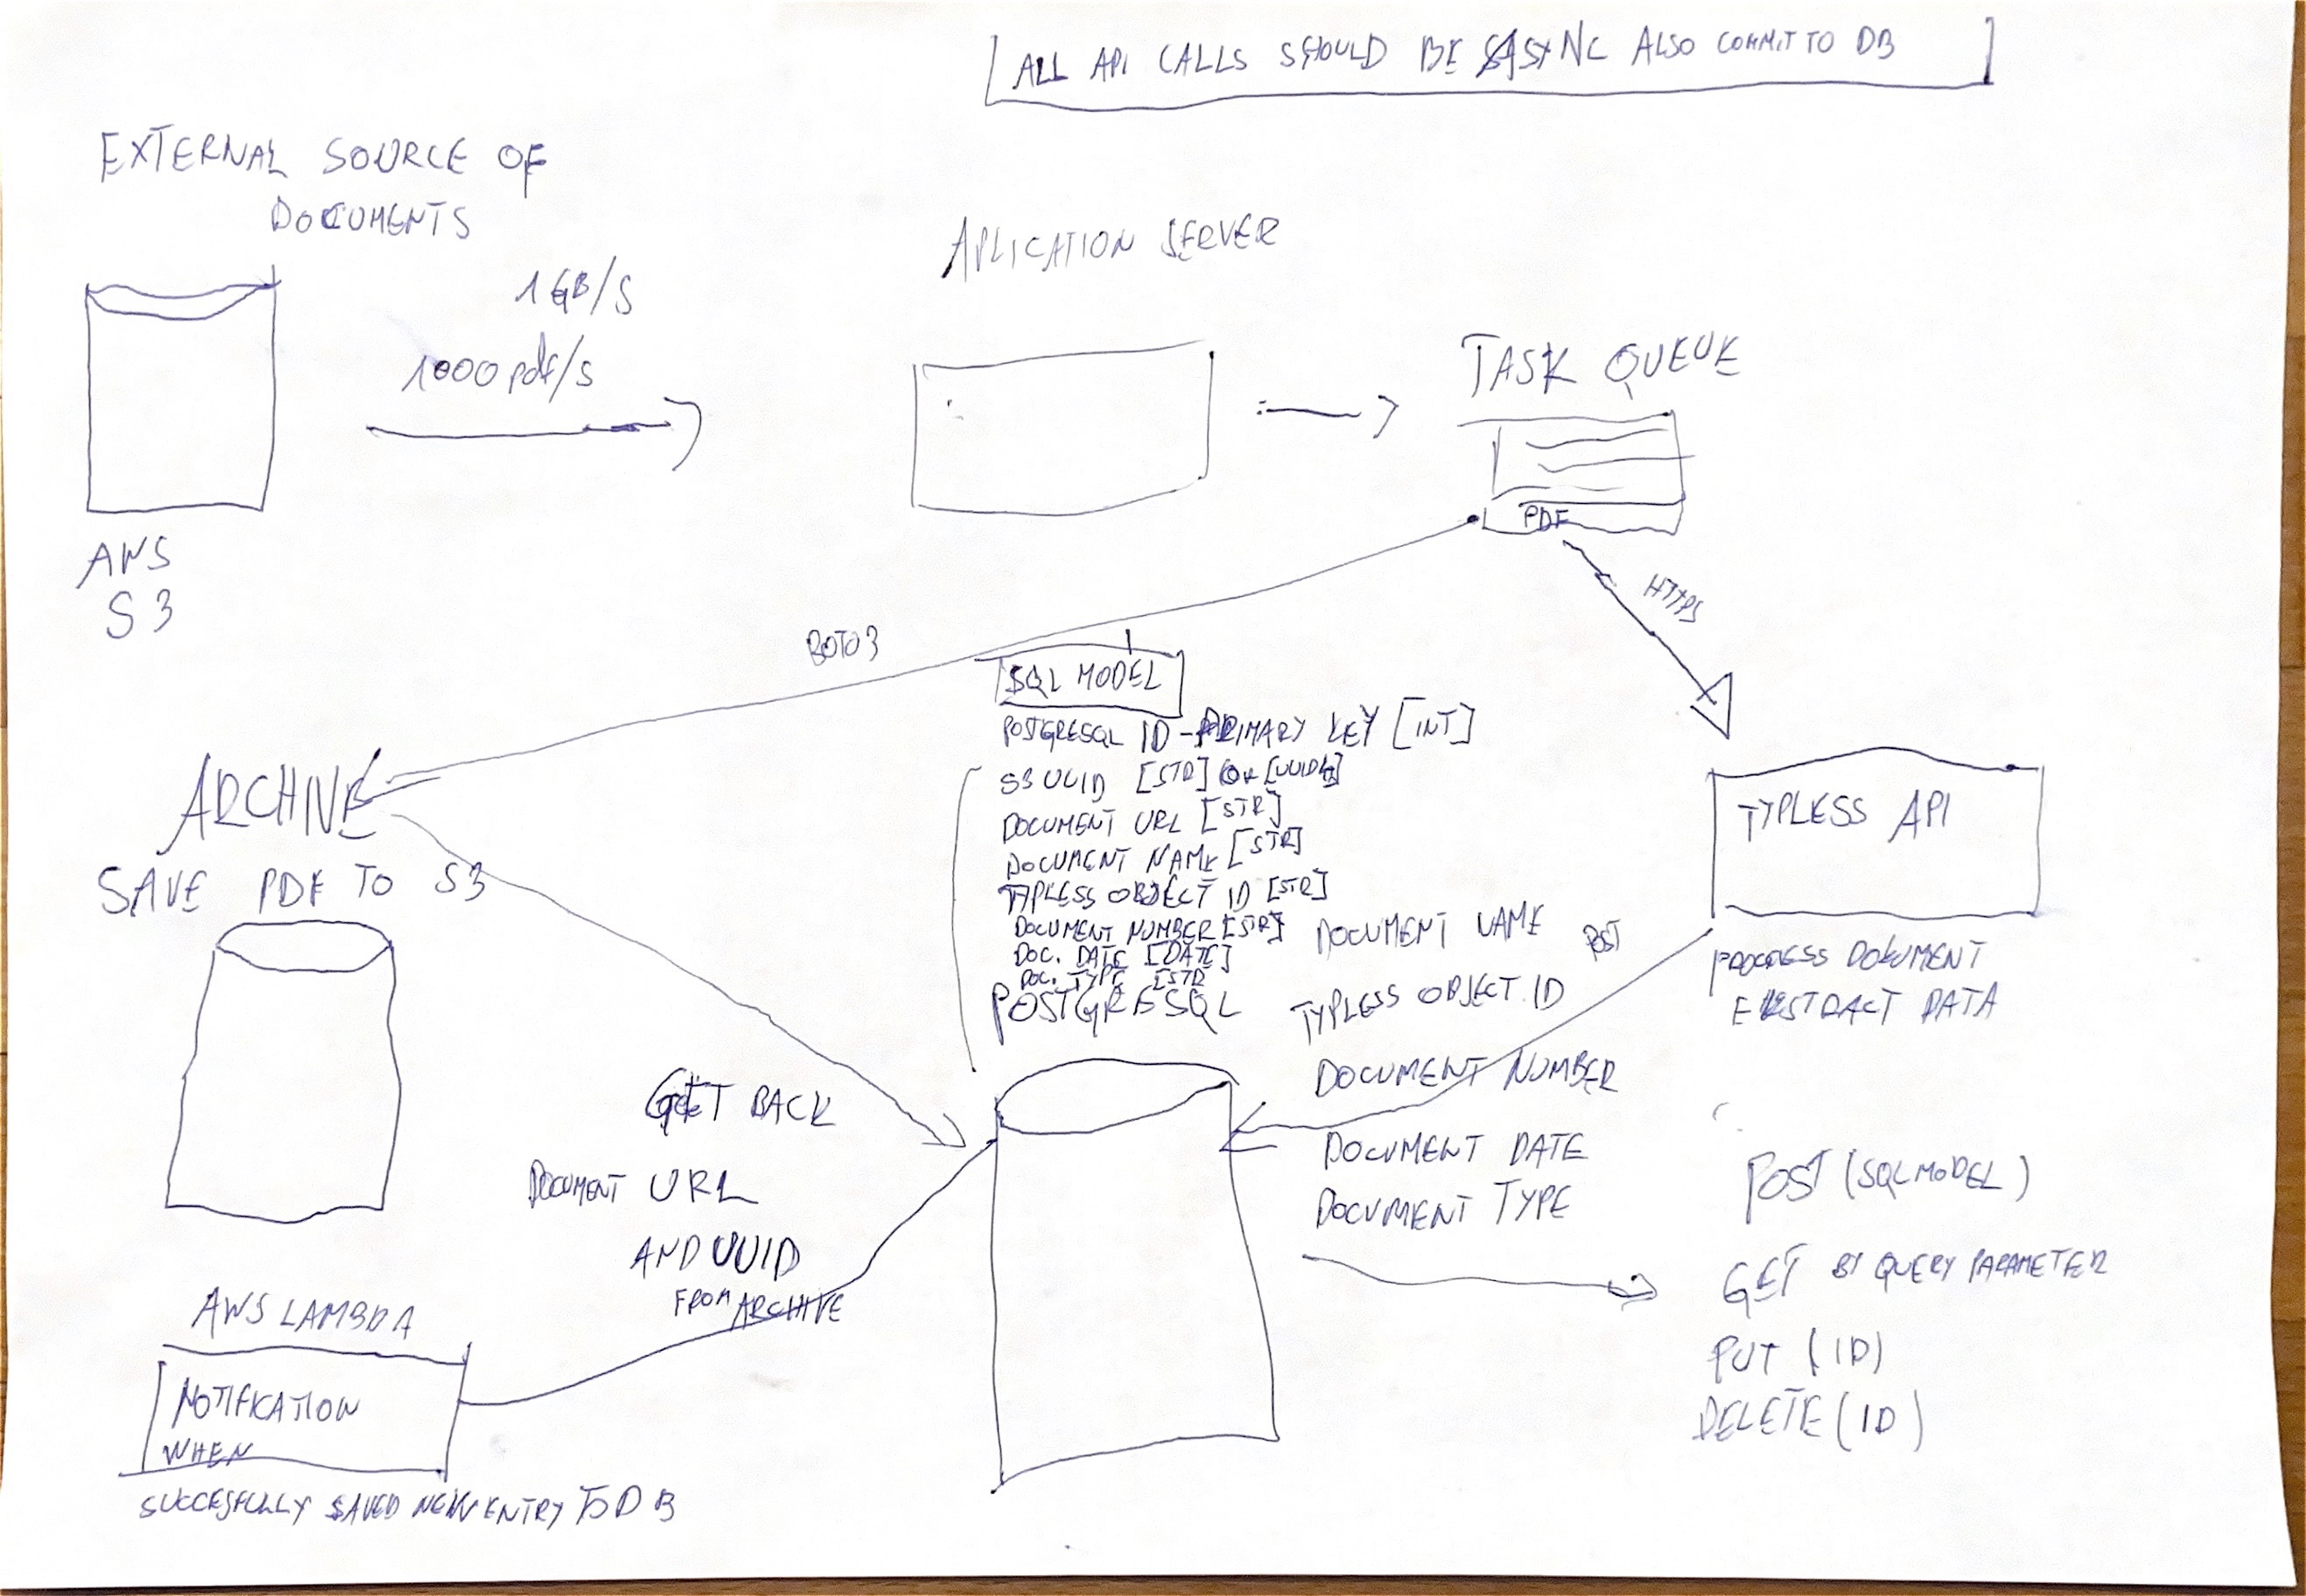 ALL API CALLS SHOULD BE ASYNC ALSO COMMIT TO DB
EXTERNAL SOURCE OF
DOCUMENTS
1 GB/S
1000 pdf/s
AWS
S3
APLICATION SERVER
TASK QUEUE
PDF
HTTPS
BOTO3
SQL MODEL
POSTGRESQL ID - PRIMARY KEY [INT]
S3 UUID [STR] OR [UUID4]
DOCUMENT URL [STR]
DOCUMENT NAME [STR]
TYPLESS OBJECT ID [STR]
DOCUMENT NUMBER [STR]
DOC. DATE [DATE]
DOC. TYPE [STR
POSTGRESQL
ARCHIVE
SAVE PDF TO S3
TYPLESS API
PROCESS DOCUMENT
EXSTRACT DATA
POST
DOCUMENT NAME
TYPLESS OBJECT ID
DOCUMENT NUMBER
DOCUMENT DATE
DOCUMENT TYPE
GET BACK
DOCUMENT URL
AND UUID
FROM ARCHIVE
POST (SQL MODEL)
GET BY QUERY PARAMETER
PUT (ID)
DELETE (ID)
AWS LAMBDA
NOTIFICATION
WHEN
SUCCESFULLY SAVED NEW ENTRY TO DB